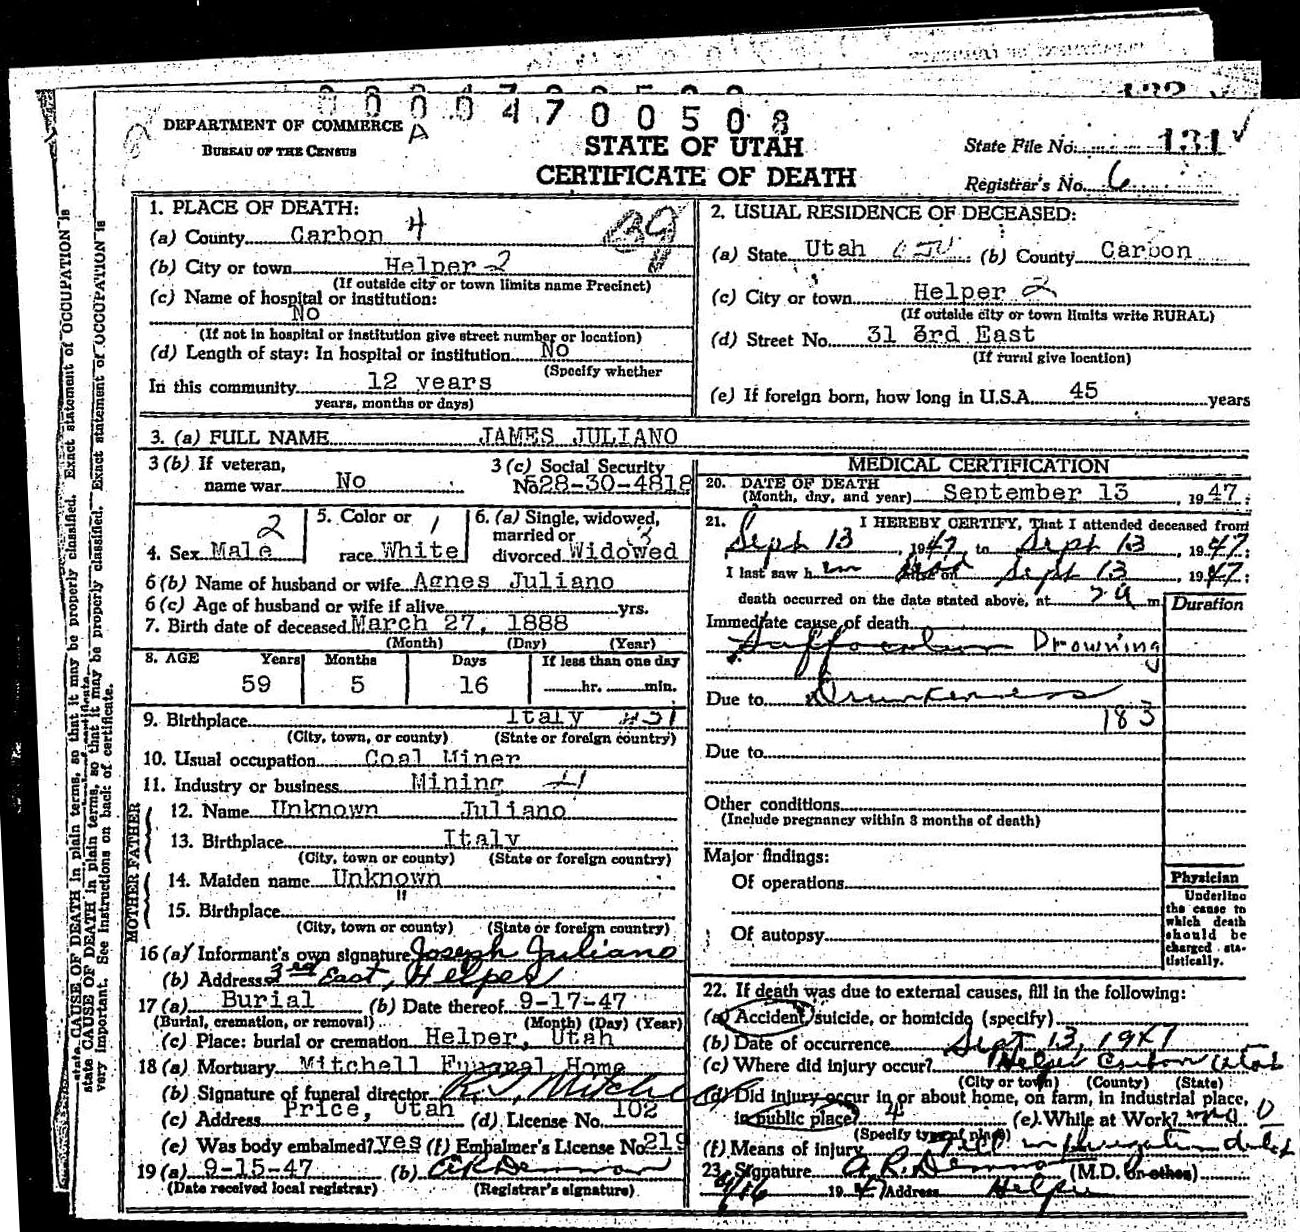 0 0 0 0 4 7 0 0 5 0 8
DEPARTMENT OF COMMERCE
A
BUREAU OF THE CENSUS
STATE OF UTAH
CERTIFICATE OF DEATH
132
State File No. 131 ✓
Registrar's No. 6
state CAUSE OF DEATH in plain terms, so that it may be properly classified. Exact statement of OCCUPATION is
state CAUSE OF DEATH in plain terms, so that it may be properly classified. Exact statement of OCCUPATION is
very important. See instructions on back of certificate.
1. PLACE OF DEATH:
(a) County Carbon 4
39
(b) City or town Helper 2
(If outside city or town limits name Precinct)
(c) Name of hospital or institution:
No
(If not in hospital or institution give street number or location)
(d) Length of stay: In hospital or institution No
(Specify whether
In this community 12 years
years, months or days)
2. USUAL RESIDENCE OF DECEASED:
(a) State Utah (b) County Carbon
(c) City or town Helper 2
(If outside city or town limits write RURAL)
(d) Street No. 31 3rd East
(If rural give location)
(e) If foreign born, how long in U.S.A. 45 years
3. (a) FULL NAME JAMES JULIANO
3 (b) If veteran,
name war No
3 (c) Social Security
No. 528-30-4818
4. Sex Male 2
5. Color or 1
race White
6. (a) Single, widowed,
married or 3
divorced Widowed
6 (b) Name of husband or wife Agnes Juliano
6 (c) Age of husband or wife if alive yrs.
7. Birth date of deceased March 27, 1888
(Month) (Day) (Year)
8. AGE Years Months Days If less than one day
59 5 16 hr. min.
9. Birthplace Italy
(City, town, or county) (State or foreign country)
10. Usual occupation Coal Miner
11. Industry or business Mining
FATHER
12. Name Unknown Juliano
13. Birthplace Italy
(City, town or county) (State or foreign country)
MOTHER
14. Maiden name Unknown
15. Birthplace "
(City, town or county) (State or foreign country)
16 (a) Informant's own signature Joseph Juliano
(b) Address 3rd East, Helper
17 (a) Burial (b) Date thereof 9-17-47
(Burial, cremation, or removal) (Month) (Day) (Year)
(c) Place: burial or cremation Helper, Utah
18 (a) Mortuary Mitchell Funeral Home
(b) Signature of funeral director Mitchell
(c) Address Price, Utah (d) License No. 102
(e) Was body embalmed? yes (f) Embalmer's License No. 219
19 (a) 9-15-47 (b)
(Date received local registrar) (Registrar's signature)
MEDICAL CERTIFICATION
20. DATE OF DEATH
(Month, day, and year) September 13, 1947;
21. I HEREBY CERTIFY, That I attended deceased from
Sept 13, 1947, to Sept 13, 1947;
I last saw him dead on Sept 13, 1947;
death occurred on the date stated above, at m. Duration
Immediate cause of death
Suffocation Drowning
Due to Drunkeness
183
Due to
Other conditions
(Include pregnancy within 3 months of death)
Major findings:
Of operations
Of autopsy
Physician
Underline
the cause to
which death
should be
charged sta-
tistically.
22. If death was due to external causes, fill in the following:
(a) Accident, suicide, or homicide (specify)
(b) Date of occurrence Sept 13, 1947
(c) Where did injury occur? Helper Carbon Utah
(City or town) (County) (State)
(d) Did injury occur in or about home, on farm, in industrial place,
in public place? 4 (e) While at Work? no 0
(Specify type of place)
(f) Means of injury Fell in irrigation ditch
23. Signature (M.D. or other)
9/16 1947 Address Helper